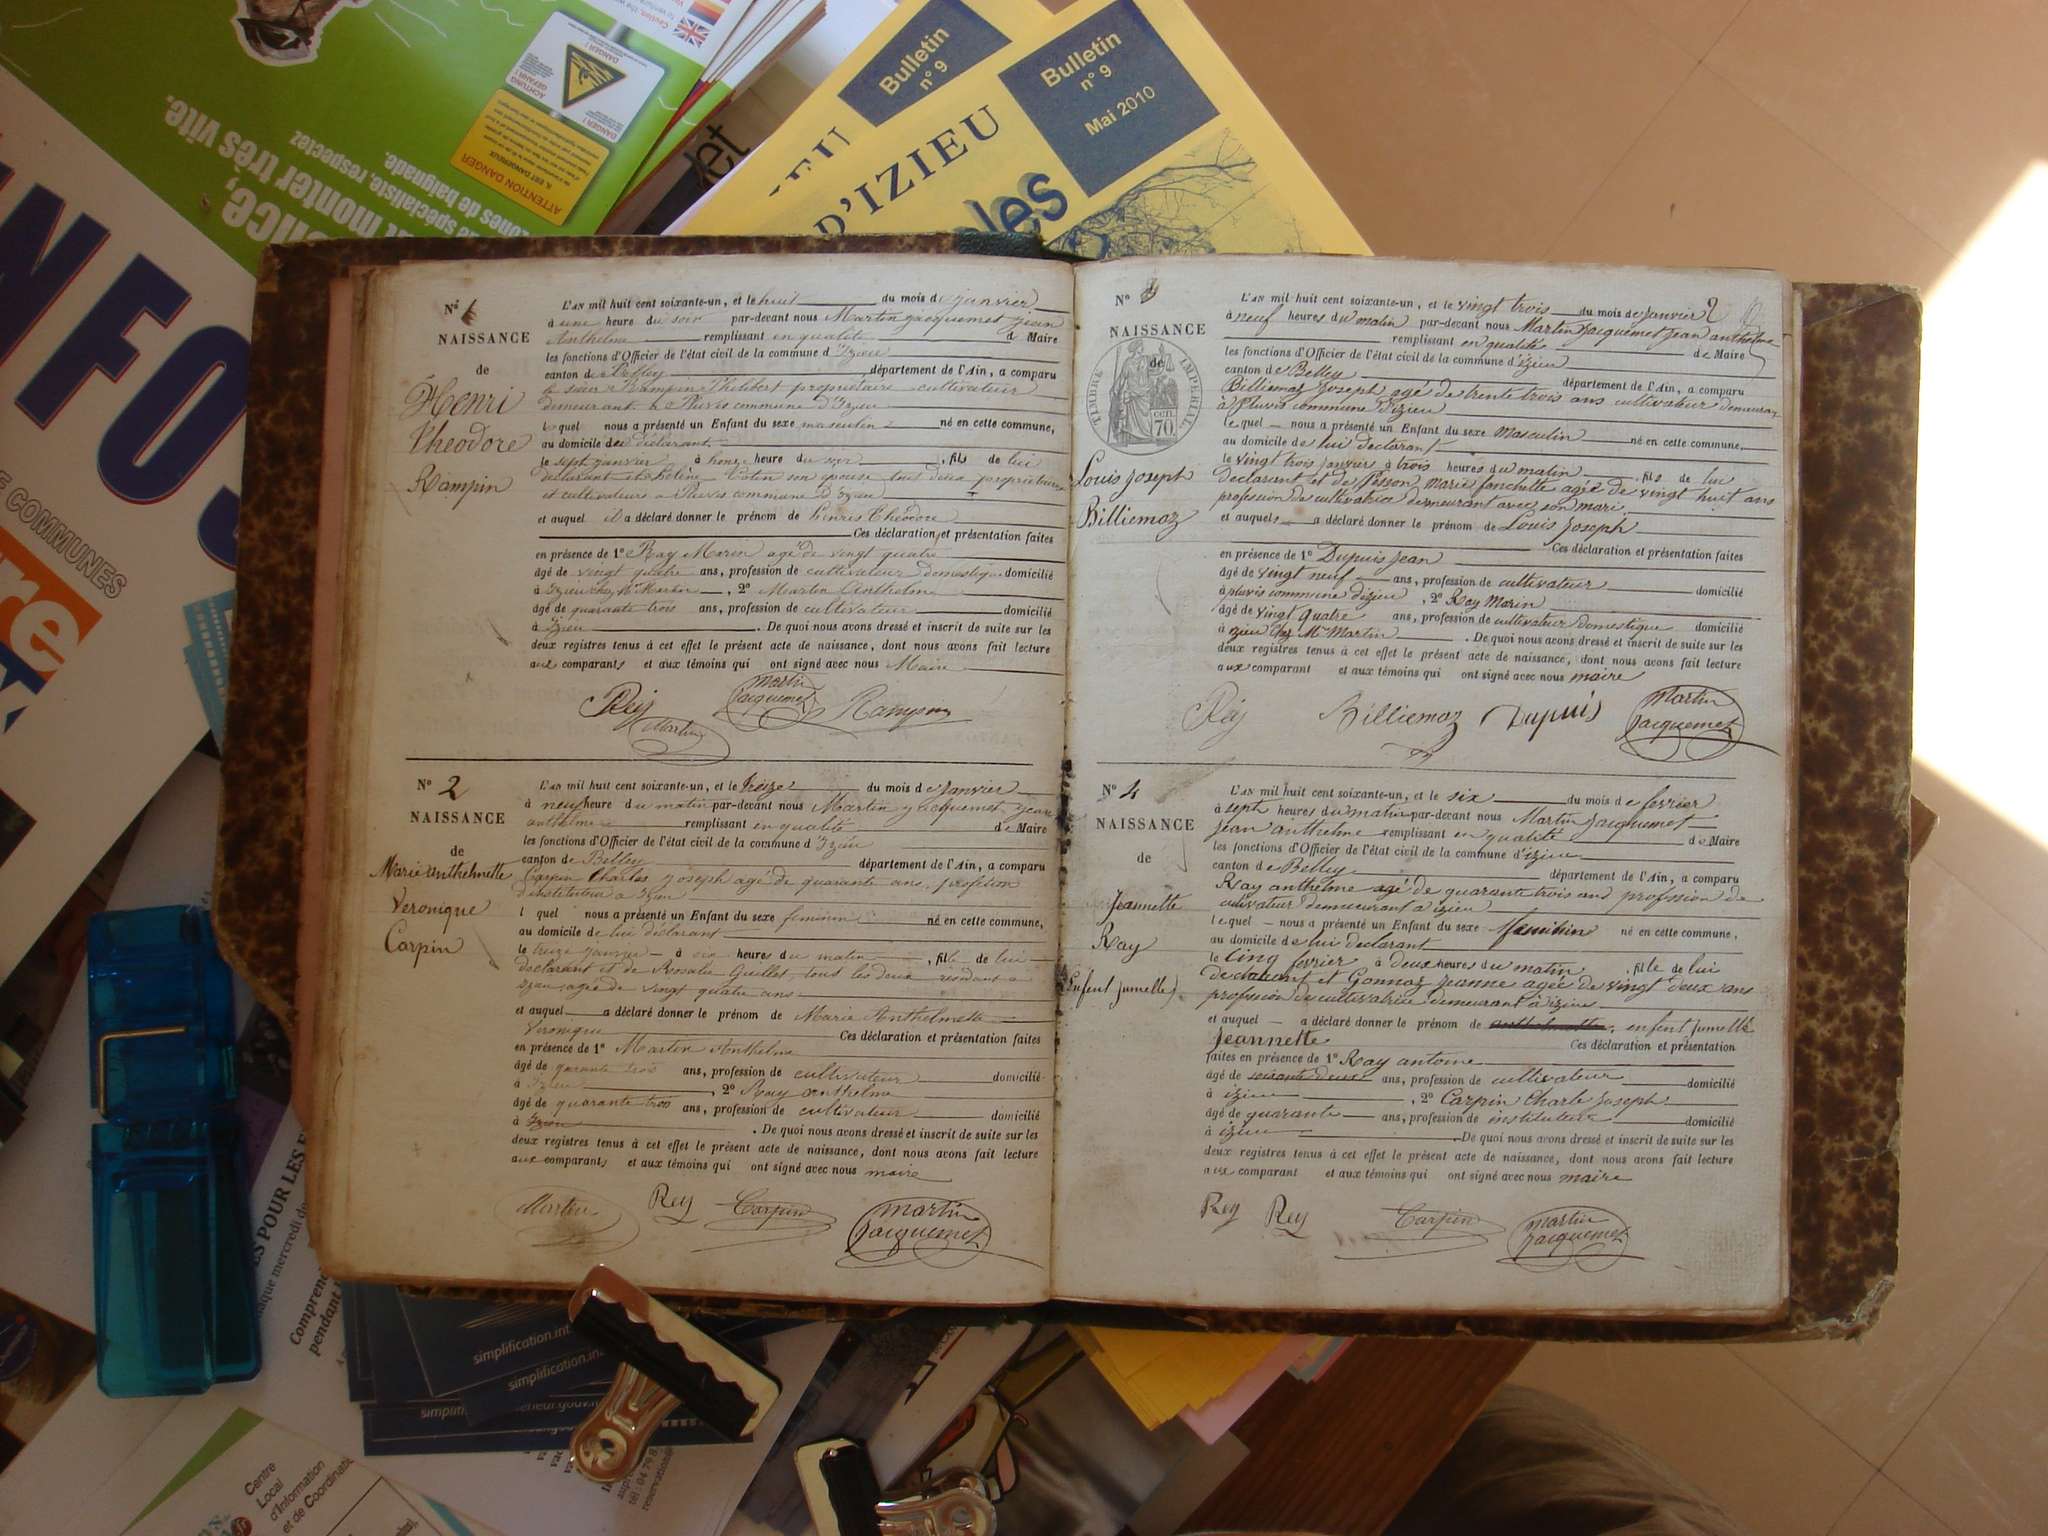 Bulletin
n° 9
Bulletin
n° 9
Mai 2010
D'IZIEU
ATTENTION DANGER
DANGER !
once,
t monter très vite.
e spécialiste, respectez
zones de baignade.
INFOS
E COMMUNES
N° 1
NAISSANCE
de
Henri
Théodore
Rampin
L'AN mil huit cent soixante-un, et le huit du mois de janvier
à une heure du soir par-devant nous Martin Jacquemet Jean
Anthelme remplissant en qualité de Maire
les fonctions d'Officier de l'état civil de la commune d'Izieu
canton de Belley, département de l'Ain, a comparu
le sieur Rampin Philibert propriétaire cultivateur
demeurant à Pluvis commune d'Izieu
lequel nous a présenté un Enfant du sexe masculin né en cette commune,
au domicile de déclarant
le sept janvier à honze heure du soir, fils de lui
déclarant et son épouse tout deux propriétaires
et cultivateurs à Pluvis commune d'Izieu
et auquel il a déclaré donner le prénom de henris Théodore
Ces déclaration et présentation faites
en présence de 1° Ray Marin agé de vingt quatre
âgé de vingt quatre ans, profession de cultivateur domestique domicilié
à Izieu chez Mr Martin, 2° Martin Anthelme
âgé de quarante trois ans, profession de cultivateur domicilié
à Izieu. De quoi nous avons dressé et inscrit de suite sur les
deux registres tenus à cet effet le présent acte de naissance, dont nous avons fait lecture
aux comparants et aux témoins qui ont signé avec nous Maire
Rey Martin Jacquemet Rampin
Martin
N° 2
NAISSANCE
de
Marie anthelmette
Veronique
Carpin
L'AN mil huit cent soixante-un, et le treize du mois de janvier
à neuf heure du matin par-devant nous Martin Jacquemet Jean
anthelme remplissant en qualité de Maire
les fonctions d'Officier de l'état civil de la commune d'Izieu
canton de Belley département de l'Ain, a comparu
Carpin Charles Joseph agé de quarante ans, profession
d'instituteur a Izieu
lequel nous a présenté un Enfant du sexe feminin né en cette commune,
au domicile de lui déclarant
le treize janvier à heures du matin, fille de lui
déclarant et de Rosalie Guillet, tous les deux résidant a
Izieu, agée de vingt quatre ans
et auquel a déclaré donner le prénom de Marie Anthelmette
Veronique Ces déclaration et présentation faites
en présence de 1° Martin Anthelme
âgé de quarante trois ans, profession de cultivateur domicilié
à Izieu, 2° Ray anthelme
âgé de quarante trois ans, profession de cultivateur domicilié
à Izieu. De quoi nous avons dressé et inscrit de suite sur les
deux registres tenus à cet effet le présent acte de naissance, dont nous avons fait lecture
aux comparants et aux témoins qui ont signé avec nous maire
Martin Rey Carpin Martin Jacquemet
N° 3
NAISSANCE
de
TIMBRE IMPERIAL
70 CENT.
Louis Joseph
Billiemaz
L'AN mil huit cent soixante-un, et le vingt trois du mois de janvier 2
à neuf heures du matin par-devant nous Martin Jacquemet Jean anthelme
remplissant en qualité de Maire
les fonctions d'Officier de l'état civil de la commune d'izieu
canton de Belley département de l'Ain, a comparu
Billiemaz Joseph agé de trente trois ans cultivateur demeurant
à pluvis commune d'izieu
lequel nous a présenté un Enfant du sexe masculin né en cette commune,
au domicile de lui declarant
le vingt trois janvier à trois heures du matin, fils de lui
declarant et de Pesson marie fanchette agée de vingt huit ans
profession de cultivatrice demeurant avec son mari
et auquels a déclaré donner le prénom de Louis Joseph
Ces déclaration et présentation faites
en présence de 1° Dupuis Jean
âgé de vingt neuf ans, profession de cultivateur domicilié
à pluvis commune d'izieu, 2° Ray Marin
âgé de vingt quatre ans, profession de cultivateur domestique domicilié
à izieu chez Mr Martin. De quoi nous avons dressé et inscrit de suite sur les
deux registres tenus à cet effet le présent acte de naissance, dont nous avons fait lecture
aux comparant et aux témoins qui ont signé avec nous maire
Rey Billiemaz Dupuis Martin Jacquemet
N° 4
NAISSANCE
de
Jeannette
Ray
(Enfent jumelle)
L'AN mil huit cent soixante-un, et le six du mois de fevrier
à sept heures du matin par-devant nous Martin Jacquemet
Jean anthelme remplissant en qualité de Maire
les fonctions d'Officier de l'état civil de la commune d'izieu
canton de Belley département de l'Ain, a comparu
Ray anthelme agé de quarante trois ans profession de
cutivateur demeurant à izieu
lequel nous a présenté un Enfant du sexe féminin né en cette commune,
au domicile de lui declarant
le cinq fevrier à deux heures du matin, fille de lui
declarant et Gonnaz Jeanne agée de vingt deux ans
profession de cultivatrice demeurant à izieu
et auquel a déclaré donner le prénom de anthelmette, enfent jumelle
Jeannette Ces déclaration et présentation
faites en présence de 1° Ray antoine
âgé de soixante deux ans, profession de cultivateur domicilié
à izieu, 2° Carpin Charle Joseph
âgé de quarante ans, profession de instituteur domicilié
à izieu De quoi nous avons dressé et inscrit de suite sur les
deux registres tenus à cet effet le présent acte de naissance, dont nous avons fait lecture
aux comparant et aux témoins qui ont signé avec nous maire
Rey Rey Carpin Martin Jacquemet
simplification.in
simplification.in
Centre
Local
d'Information
et de Coordinatio